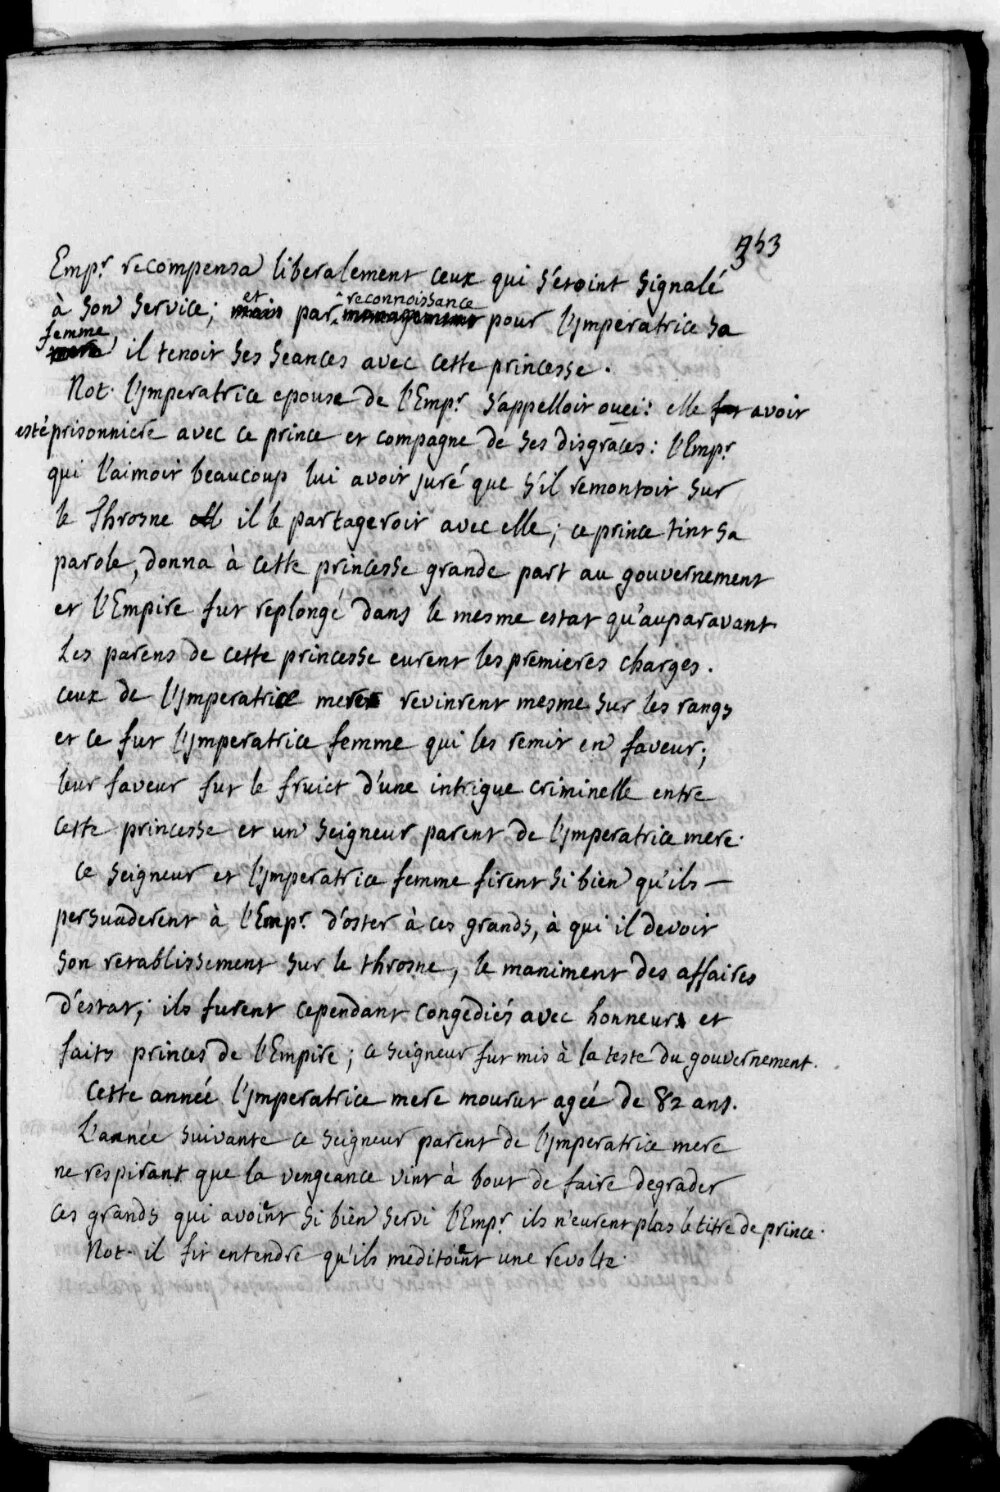 353
Emp.r recompensa liberalement ceux qui s'etoint signalé
à son service; et par reconnoissance pour l'jmperatrice sa
femme il tenoit ses seances avec cette princesse.
Not. l'jmperatrice epouse de l'Emp.r s'appelloit ouei: elle avoit
esté prisonniere avec ce prince et compagne de ses disgraces: l'Emp.r
qui l'aimoit beaucoup lui avoit juré que s'il remontoit sur
le Throsne il le partageroit avec elle; ce prince tint sa
parole, donna à cette princesse grande part au gouvernement
et l'Empire fut replongé dans le mesme estat qu'auparavant
Les parens de cette princesse eurent les premieres charges.
ceux de l'jmperatrice mere revinrent mesme sur les rangs
et ce fut l'jmperatrice femme qui les remit en faveur;
leur faveur fut le fruict d'une intrigue criminelle entre
cette princesse et un seigneur parent de l'jmperatrice mere.
Ce seigneur et l'jmperatrice femme firent si bien qu'ils
persuaderent à l'Emp.r d'oster à ces grands, à qui il devoit
son retablissement sur le throsne, le maniment des affaires
d'estat; ils furent cependant congediés avec honneur et
faits princes de l'Empire; ce seigneur fut mis à la teste du gouvernement.
Cette année l'jmperatrice mere mourut agée de 82 ans.
L'année suivante ce seigneur parent de l'jmperatrice mere
ne respirant que la vengeance vint à bout de faire degrader
ces grands qui avoint si bien servi l'Emp.r ils n'eurent plus le titre de prince.
Not. il fit entendre qu'ils meditoint une revolte.